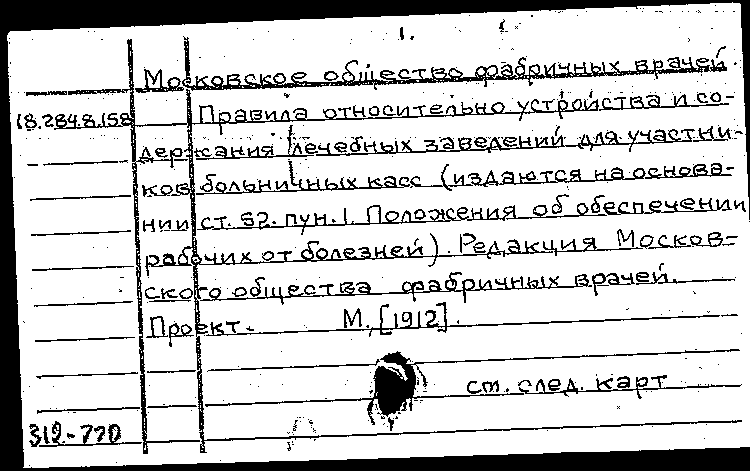 1.
Московское общество фабричных врачей.
18.284.8.158 Правила относительно устройства и со-
держания лечебных заведений для участни-
ков больничных касс (издаются на основа-
нии ст. 52. пун. 1. Положения об обеспечении
рабочих от болезней). Редакция Москов-
ского общества фабричных врачей.
Проект. М., [1912].
ст. след. карт
312-770